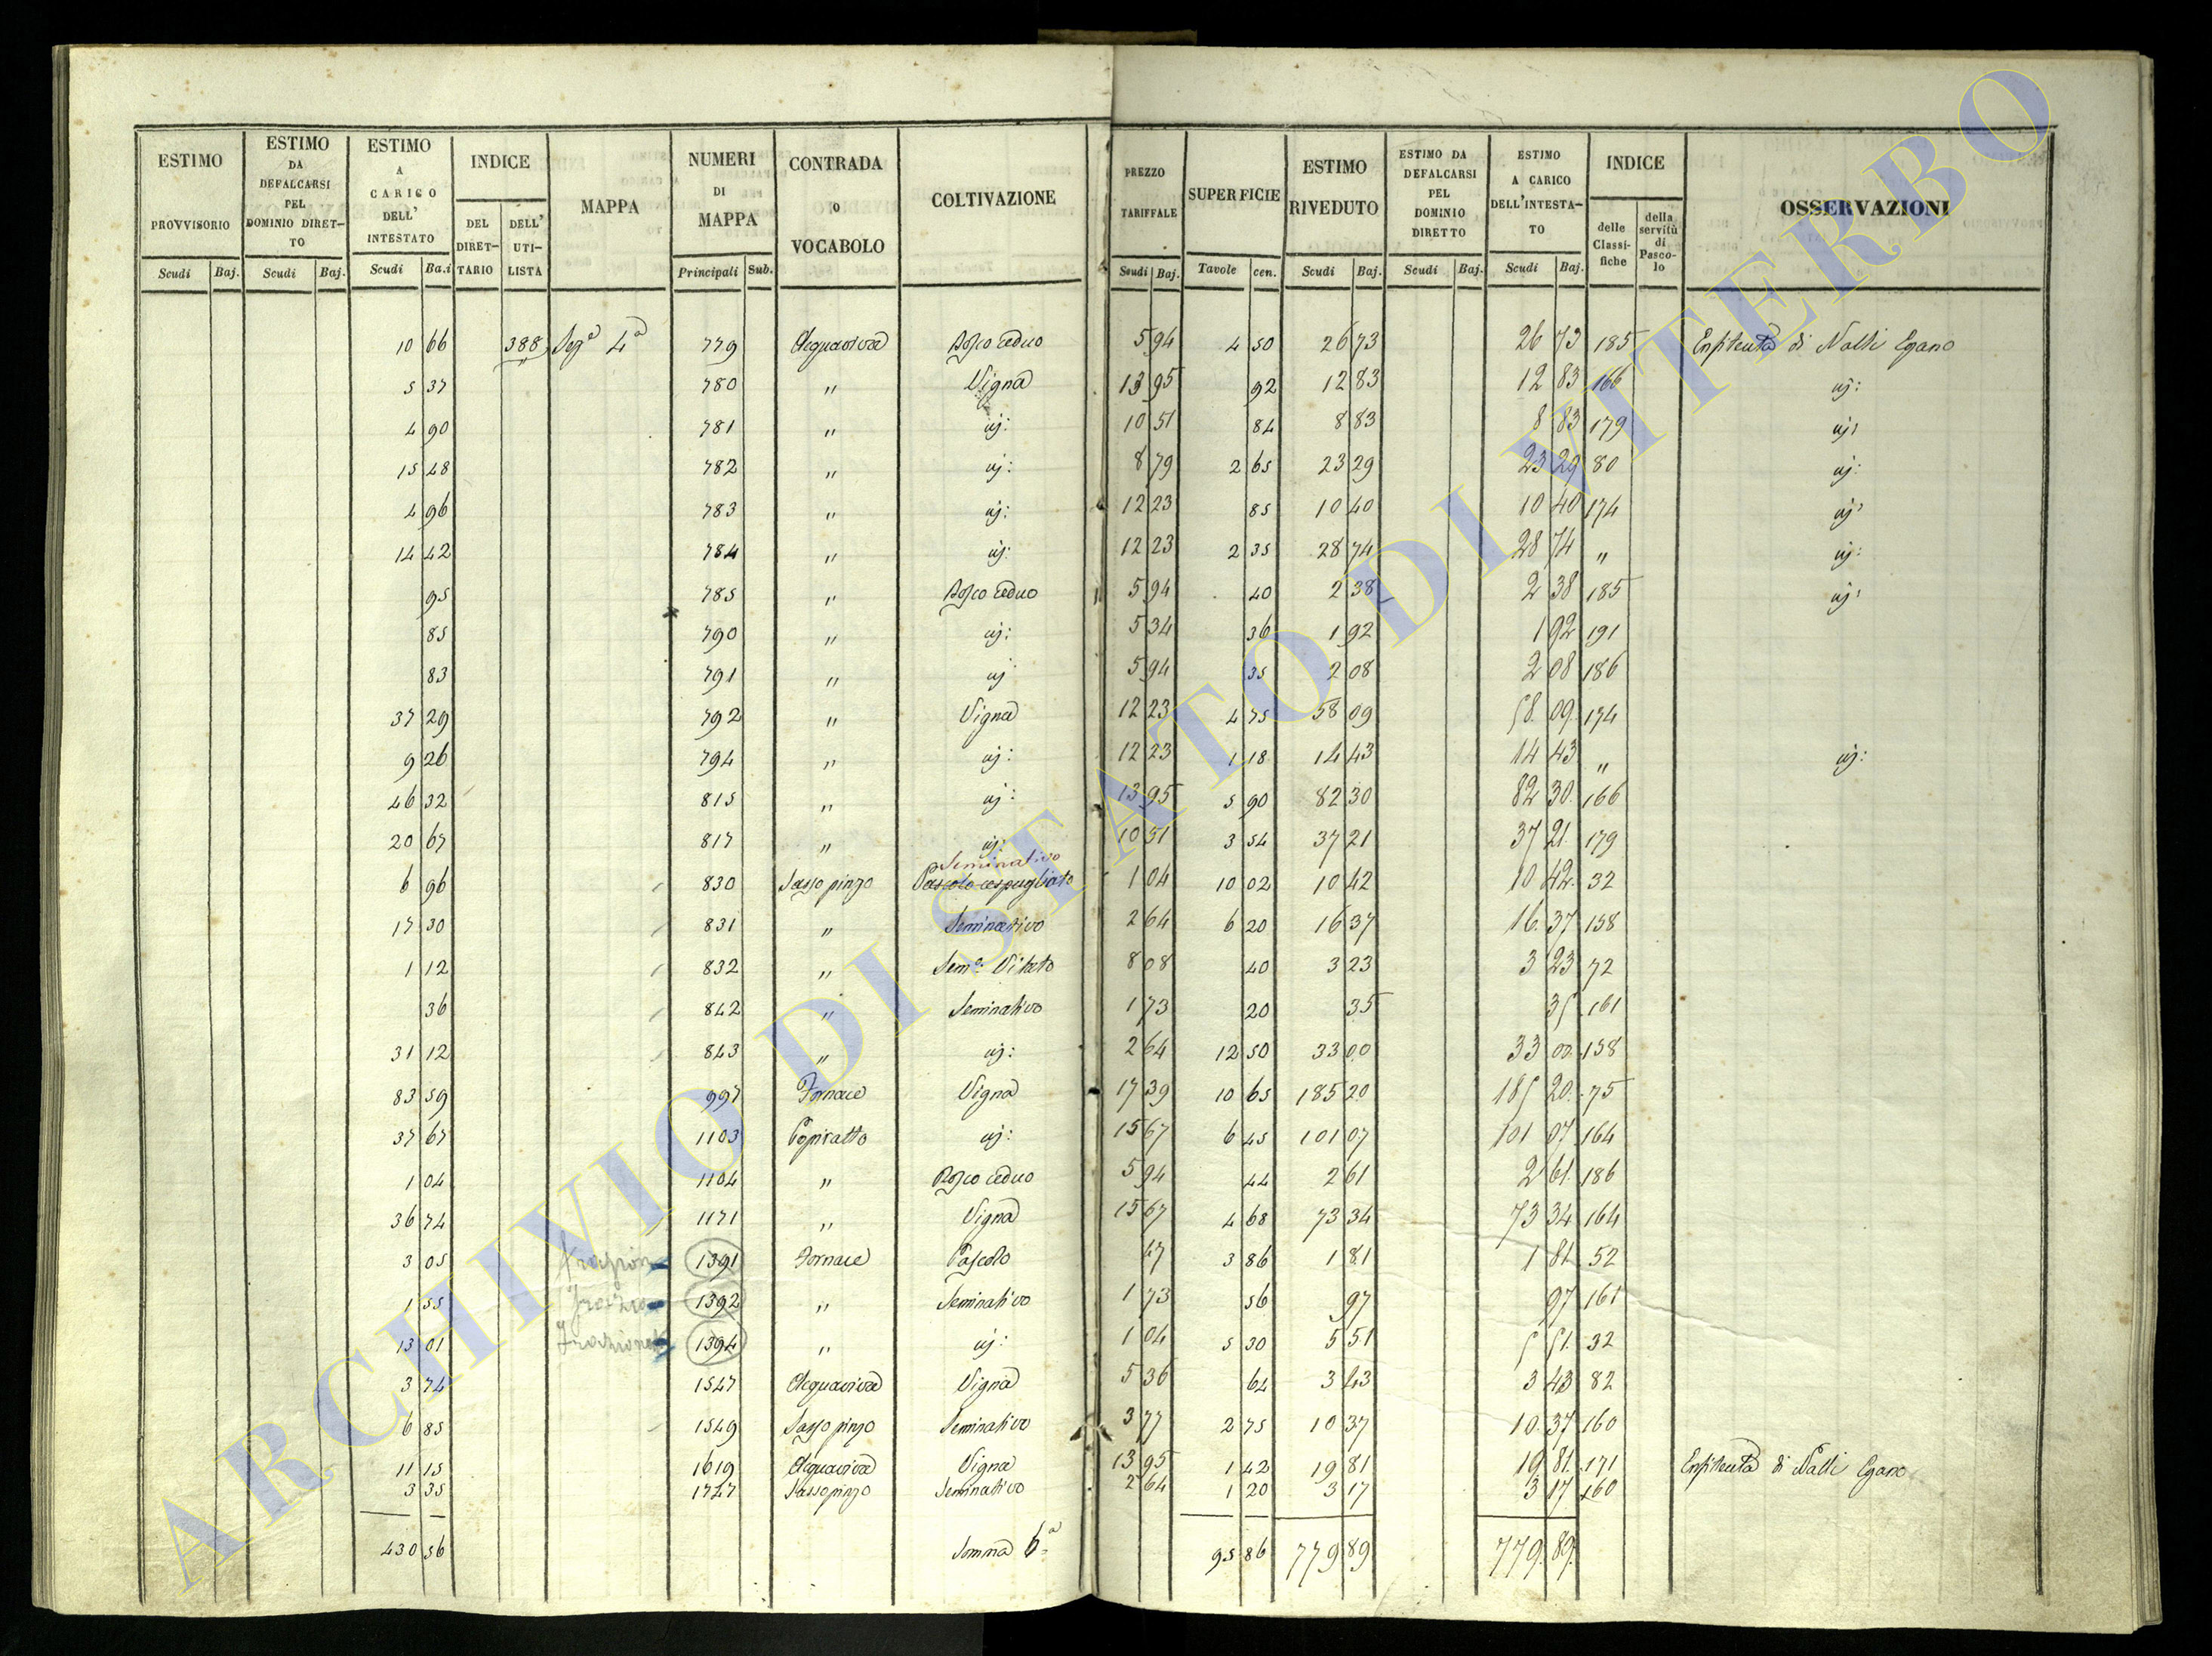 ESTIMO PROVVISORIO Scudi Baj. | ESTIMO DA DEFALCARSI PEL DOMINIO DIRET-TO Scudi Baj. | ESTIMO A CARICO DELL' INTESTATO Scudi Ba.i | INDICE DEL DIRET-TARIO DELL' UTI-LISTA | MAPPA | NUMERI DI MAPPA Principali Sub. | CONTRADA O VOCABOLO | COLTIVAZIONE | PREZZO TARIFFALE Scudi Baj. | SUPERFICIE Tavole cen. | ESTIMO RIVEDUTO Scudi Baj. | ESTIMO DA DEFALCARSI PEL DOMINIO DIRETTO Scudi Baj. | ESTIMO A CARICO DELL'INTESTA-TO Scudi Baj. | INDICE delle Classi-fiche della servitù di Pasco-lo | OSSERVAZIONI
10 66 388 Sez.e 4a 779 Acquaviva Bosco Ceduo 5 94 4 50 26 73 26 73 185 Enfiteuta di Nalli Egano
5 37 780 " Vigna 13 95 92 12 83 12 83 166 uj:
4 90 781 " uj: 10 51 84 8 83 8 83 179 uj:
15 48 782 " uj: 8 79 2 65 23 29 23 29 80 uj:
4 96 783 " uj: 12 23 85 10 40 10 40 174 uj:
14 42 784 " uj: 12 23 2 35 28 74 28 74 " uj:
95 785 " Bosco Ceduo 5 94 40 2 38 2 38 185 uj:
85 790 " uj: 5 34 36 1 92 1 92 191
83 791 " uj 5 94 35 2 08 2 08 186
37 29 792 " Vigna 12 23 4 75 58 09 58 09 174
9 26 794 " uj: 12 23 1 18 14 43 14 43 " uj:
46 32 815 " uj: 13 95 5 90 82 30 82 30 166
20 67 817 " uj: 10 51 3 54 37 21 37 21 179
Seminativo
6 96 830 Sasso pinzo Pascolo cespugliato 1 04 10 02 10 42 10 42 32
17 30 831 " Seminativo 2 64 6 20 16 37 16 37 158
1 12 832 " Sem.o Vitato 8 08 40 3 23 3 23 72
36 842 " Seminativo 1 73 20 35 35 161
31 12 843 " uj: 2 64 12 50 33 00 33 00 158
83 59 997 Fornace Vigna 17 39 10 65 185 20 185 20 75
37 67 1103 Poggiratto uj: 15 67 6 45 101 07 101 07 164
1 04 1104 " Bosco Ceduo 5 94 44 2 61 2 61 186
36 74 1171 " Vigna 15 67 4 68 73 34 73 34 164
3 05 1391 Fornace Pascolo 47 3 86 1 81 1 81 52
1 55 1392 " Seminativo 1 73 56 97 97 161
13 01 Frazione 1394 " uj: 1 04 5 30 5 51 5 51 32
3 74 1547 Acquaviva Vigna 5 36 64 3 43 3 43 82
6 85 1549 Sasso pinzo Seminativo 3 77 2 75 10 37 10 37 160
11 15 1619 Acquaviva Vigna 13 95 1 42 19 81 19 81 171 Enfiteuta di Nalli Egano
3 35 1727 Sassopinzo Seminativo 2 64 1 20 3 17 3 17 160
430 56 Somma 6.a 95 86 779 89 779 89
ARCHIVIO DI STATO DI VITERBO